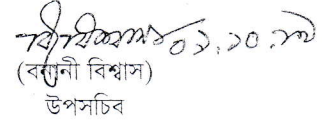 ০১.১০.১৭
(বনানী বিশ্বাস)
উপসচিব